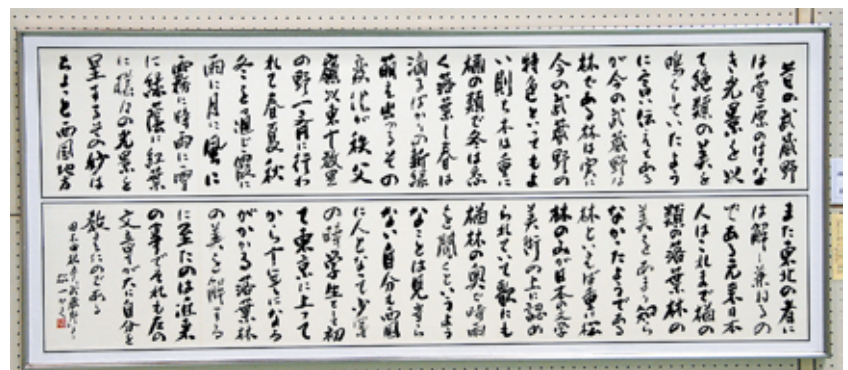 昔の武蔵野
は萱原のはてな
き光景を以
て絶類の美を
鳴らしていたよう
に言い伝えてある
が今の武蔵野は
林である林は実に
今の武蔵野の
特色といってもよ
い則ち木は重に
楢の類で冬は悉
く落葉し春は
滴るばかりの新緑
萌え出づるその
変化が秩父
嶺以東十数里
の野一斉に行わ
れて春夏秋
冬を通じ霞に
雨に月に風に
霧に時雨に雪
に緑蔭に紅葉
に様々の光景を
呈するその妙は
ちょっと西国地方
また東北の者に
は解し兼ねるの
である元来日本
人はこれまで楢の
類の落葉林の
美をあまり知ら
なかったようである
林といえば重に松
林のみが日本の文学
美術の上に認め
られていて歌にも
楢林の奥で時雨
を聞くというよう
なことは見当ら
ない自分も西国
に人となって少年
の時学生として初
て東京に上って
から十年になる
がかかる落葉林
の美を解する
に至たのは近来
の事でそれも左の
文章が大に自分を
教えたのである
国木田独歩 武蔵野より